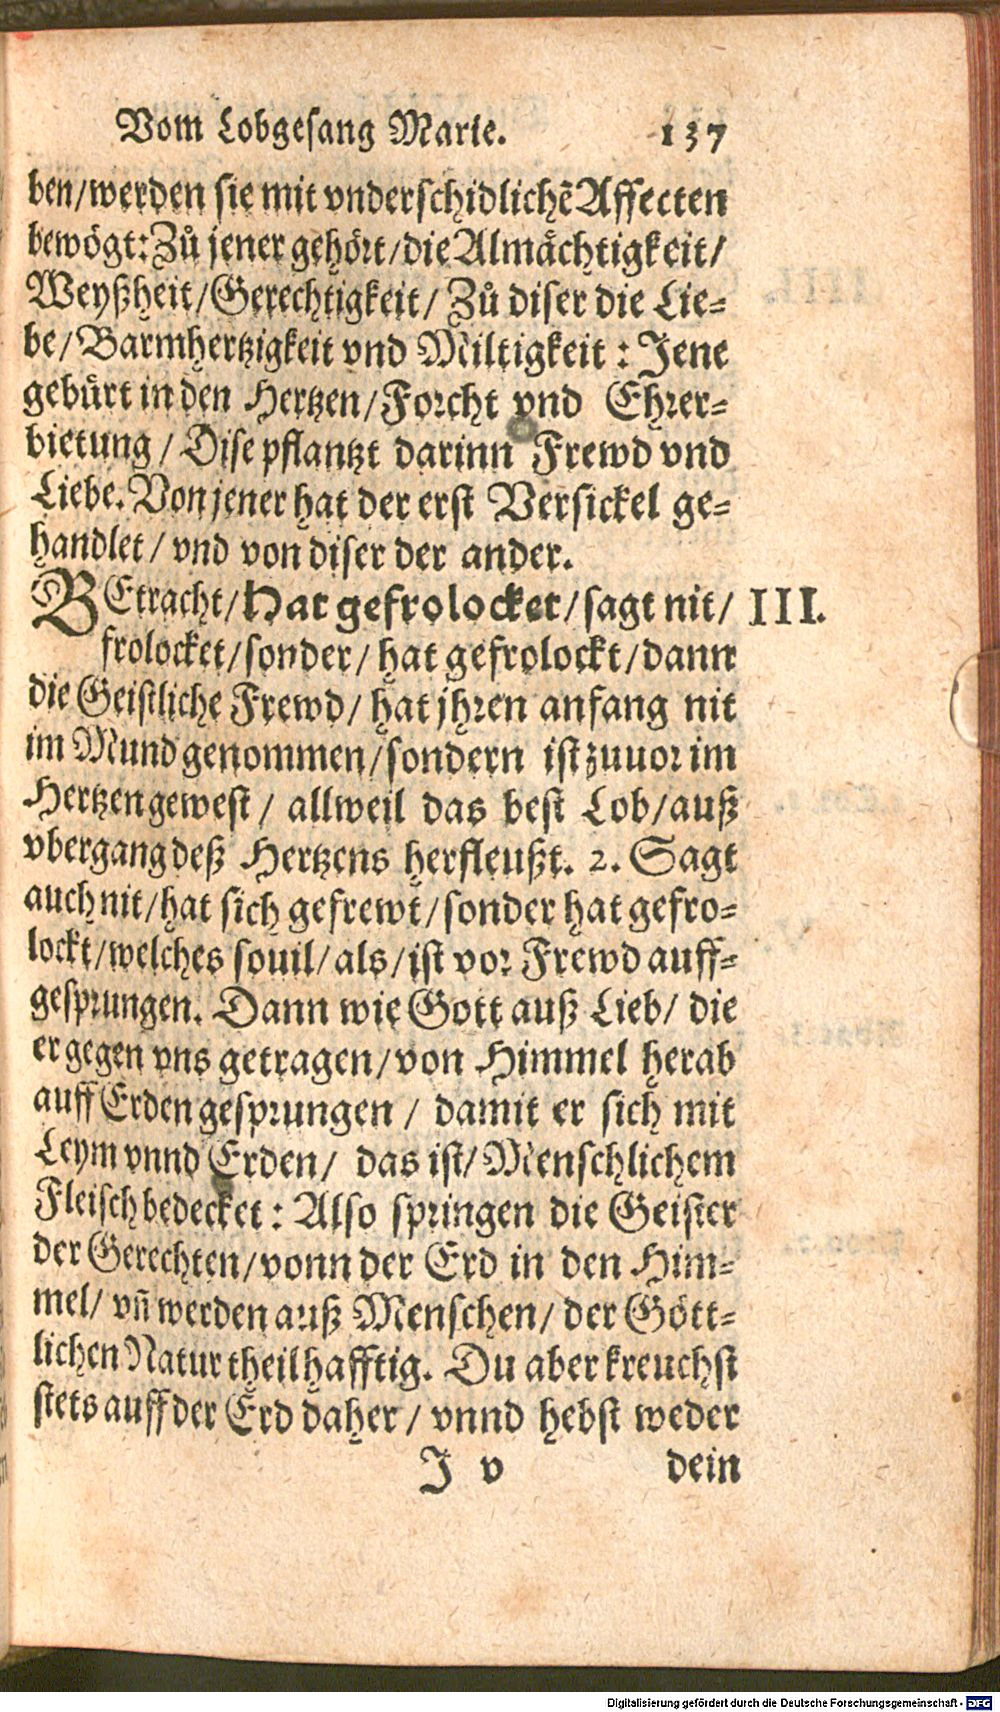 Vom Lobgesang Marie. 137
ben/werden sie mit vnderschidlichẽ Affecten
bewögt: Zů jener gehört/die Almächtigkeit/
Weyßheit/Gerechtigkeit/ Zů diser die Lie-
be/ Barmhertzigkeit vnd Miltigkeit : Jene
gebürt in den Hertzen/Forcht vnd Ehrer-
bietung / Dise pflantzt darinn Frewd vnd
Liebe. Von jener hat der erst Versickel ge-
handlet / vnd von diser der ander.
BEtracht/Hat gefrolocket/sagt nit/ III.
frolocket/sonder/ hat gefrolockt/dann
die Geistliche Frewd/ hat jhren anfang nit
im Mund genommen/sondern ist zuuor im
Hertzen gewest / allweil das best Lob/auß
vbergang deß Hertzens herfleußt. 2. Sagt
auch nit/hat sich gefrewt/sonder hat gefro-
lockt/welches souil/als/ist vor Frewd auff-
gesprungen. Dann wie Gott auß Lieb/ die
er gegen vns getragen/von Himmel herab
auff Erden gesprungen / damit er sich mit
Leym vnnd Erden/ das ist/Menschlichem
Fleisch bedecket : Also springen die Geister
der Gerechten/vonn der Erd in den Him-
mel/ vñ werden auß Menschen/ der Gött-
lichen Natur theilhafftig. Du aber kreuchst
stets auff der Erd daher / vnnd hebst weder
J v dein
Digitalisierung gefördert durch die Deutsche Forschungsgemeinschaft - DFG